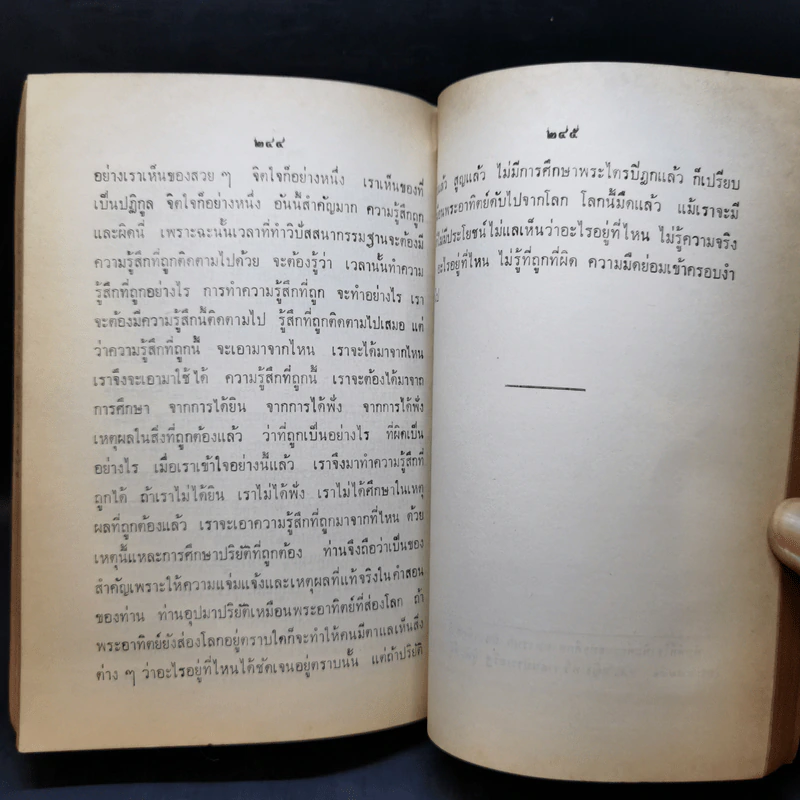 ๒๔๔
อย่างเราเห็นของสวย ๆ จิตใจก็อย่างหนึ่ง เราเห็นของที่
เป็นปฏิกูล จิตใจก็อย่างหนึ่ง อันนี้สำคัญมาก ความรู้สึกถูก
และผิดนี่ เพราะฉะนั้นเวลาที่ทำวิปัสสนากรรมฐานจะต้องมี
ความรู้สึกที่ถูกติดตามไปด้วย จะต้องรู้ว่า เวลานั้นทำความ
รู้สึกที่ถูกอย่างไร การทำความรู้สึกที่ถูก จะทำอย่างไร เรา
จะต้องมีความรู้สึกนี้ติดตามไป รู้สึกที่ถูกติดตามไปเสมอ แต่
ว่าความรู้สึกที่ถูกนี้ จะเอามาจากไหน เราจะได้มาจากไหน
เราจึงจะเอามาใช้ได้ ความรู้สึกที่ถูกนี้ เราจะต้องได้มาจาก
การศึกษา จากการได้ยิน จากการได้ฟัง จากการได้ฟัง
เหตุผลในสิ่งที่ถูกต้องแล้ว ว่าที่ถูกเป็นอย่างไร ที่ผิดเป็น
อย่างไร เมื่อเราเข้าใจอย่างนี้แล้ว เราจึงมาทำความรู้สึกที่
ถูกได้ ถ้าเราไม่ได้ยิน เราไม่ได้ฟัง เราไม่ได้ศึกษาในเหตุ
ผลที่ถูกต้องแล้ว เราจะเอาความรู้สึกที่ถูกมาจากที่ไหน ด้วย
เหตุนี้แหละการศึกษาปริยัติที่ถูกต้อง ท่านจึงถือว่าเป็นของ
สำคัญเพราะให้ความแจ่มแจ้งและเหตุผลที่แท้จริงในคำสอน
ของท่าน ท่านอุปมาปริยัติเหมือนพระอาทิตย์ที่ส่องโลก ถ้า
พระอาทิตย์ยังส่องโลกอยู่ตราบใดก็จะทำให้คนมีตาแลเห็นสิ่ง
ต่าง ๆ ว่าอะไรอยู่ที่ไหนได้ชัดเจนอยู่ตราบนั้น แต่ถ้าปริยัติ
๒๔๕
แล้ว สูญแล้ว ไม่มีการศึกษาพระไตรปิฎกแล้ว ก็เปรียบ
พระอาทิตย์ดับไปจากโลก โลกนี้มืดแล้ว แม้เราจะมี
ไม่มีประโยชน์ไม่แลเห็นว่าอะไรอยู่ที่ไหน ไม่รู้ความจริง
อะไรอยู่ที่ไหน ไม่รู้ที่ถูกที่ผิด ความมืดย่อมเข้าครอบงำ